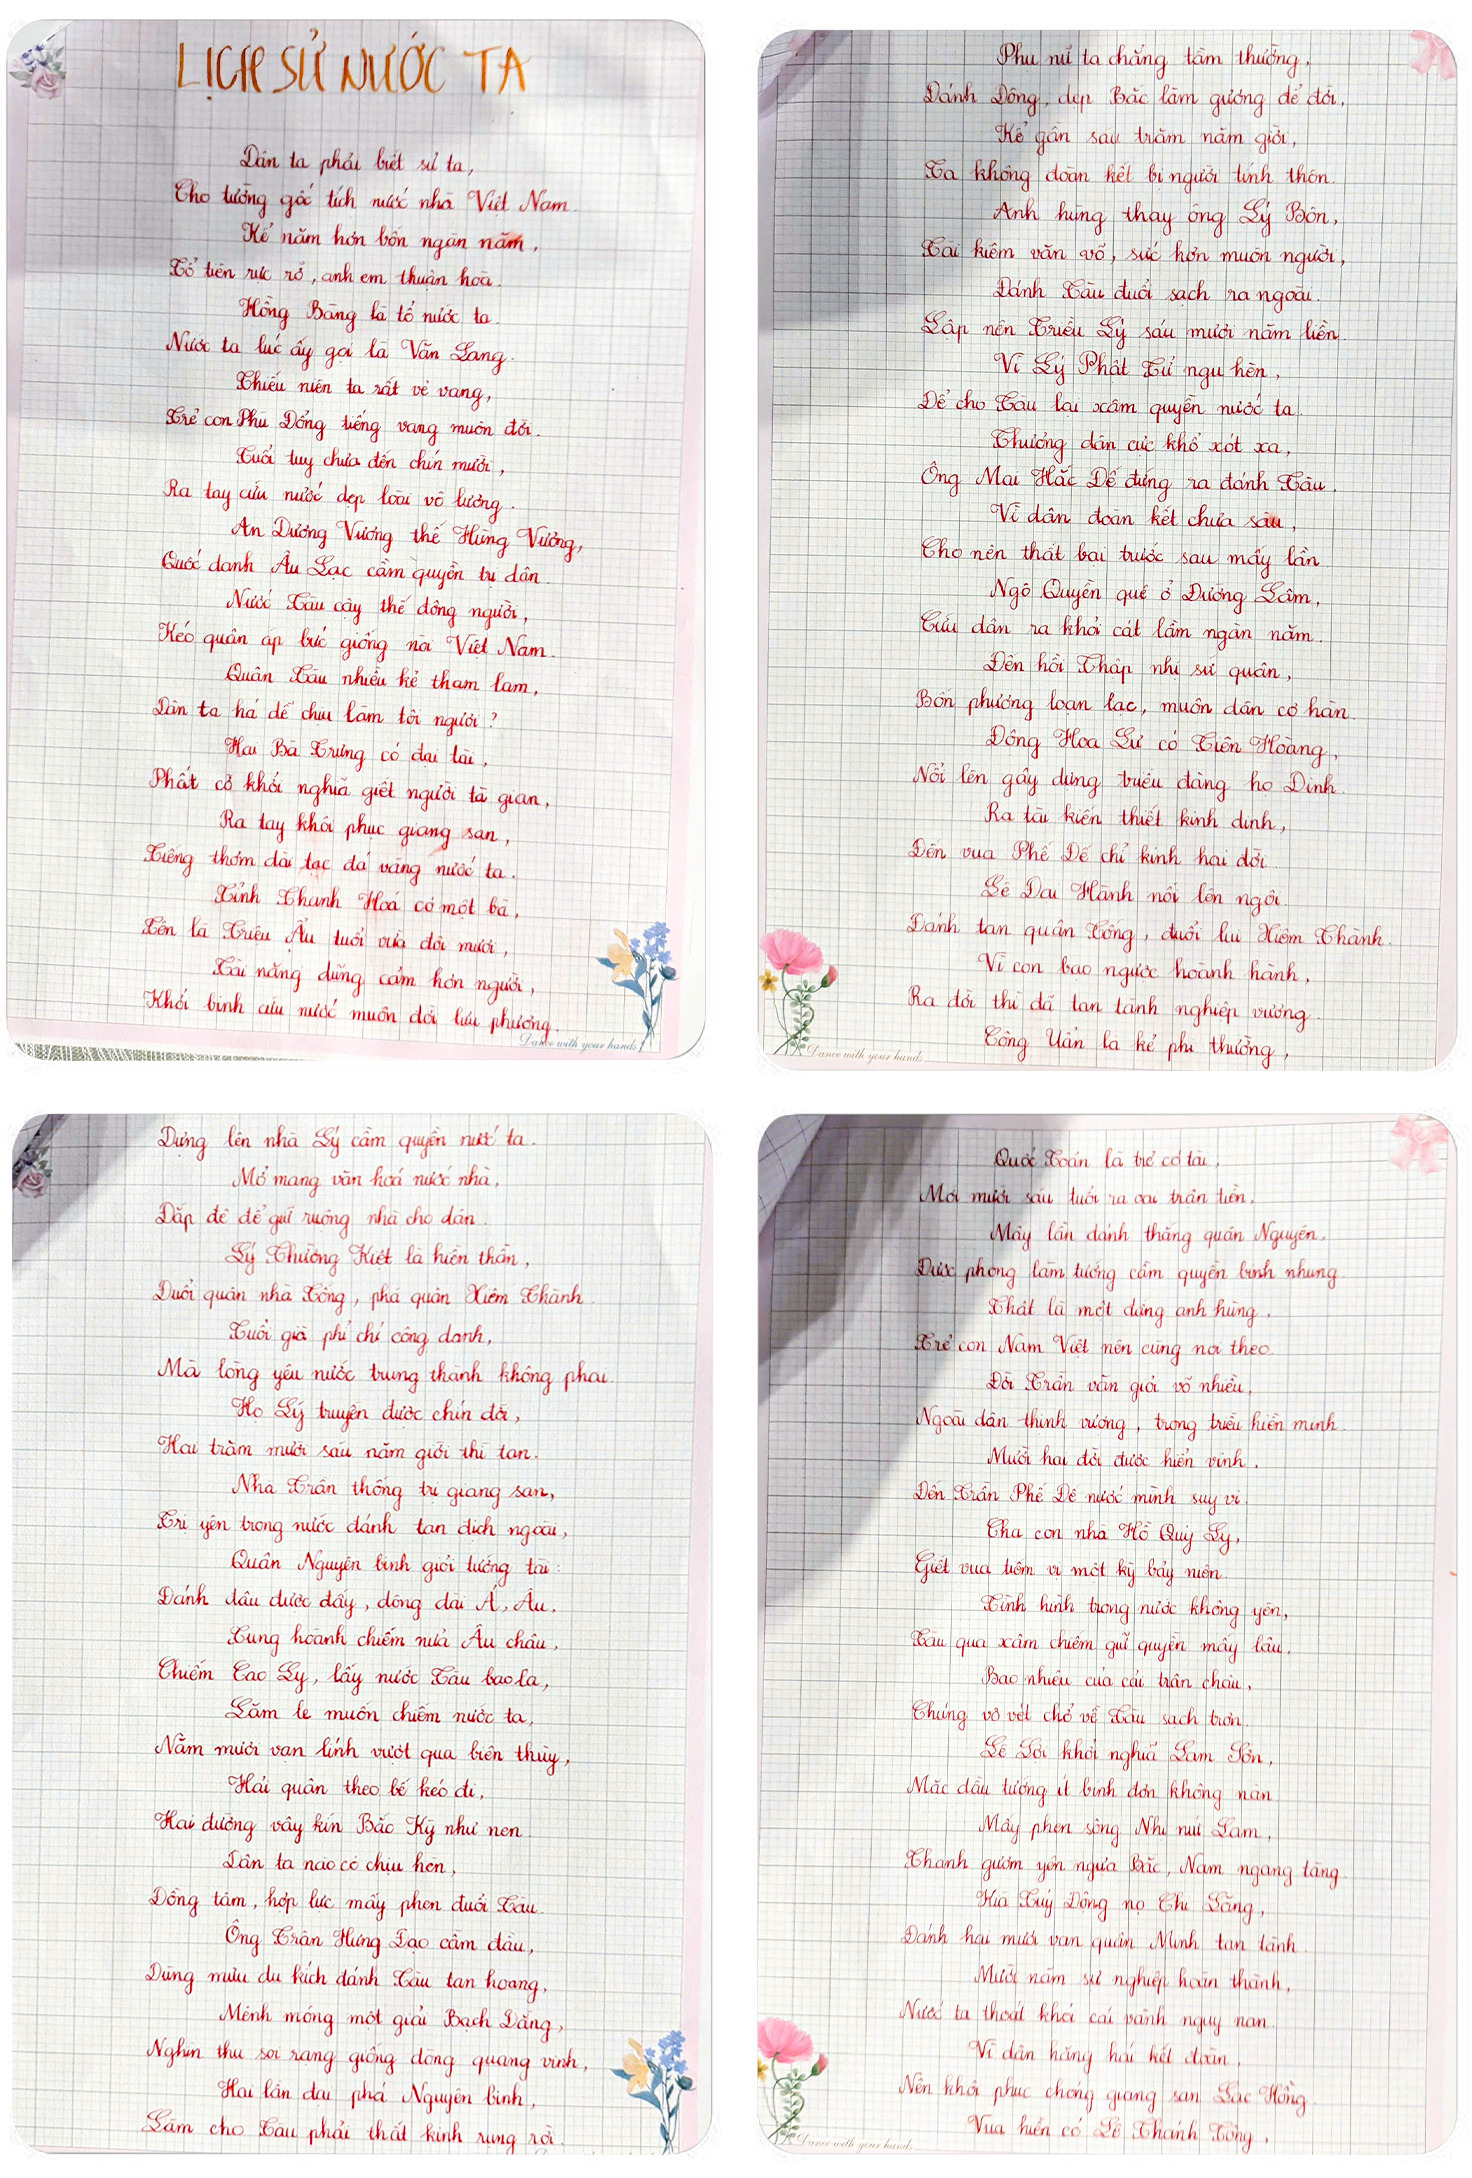 LỊCH SỬ NƯỚC TA
Dân ta phải biết sử ta,
Cho tường gốc tích nước nhà Việt Nam.
Kể năm hơn bốn ngàn năm,
Tổ tiên rực rỡ, anh em thuận hoà.
Hồng Bàng là tổ nước ta.
Nước ta lúc ấy gọi là Văn Lang.
Thiếu niên ta rất vẻ vang,
Trẻ con Phù Đổng tiếng vang muôn đời.
Tuổi tuy chưa đến chín mười,
Ra tay cứu nước dẹp loài vô lương.
An Dương Vương thế Hùng Vương,
Quốc danh Âu Lạc cầm quyền trị dân.
Nước Tàu cậy thế đông người,
Kéo quân áp bức giống nòi Việt Nam.
Quân Tàu nhiều kẻ tham lam,
Dân ta há dễ chịu làm tôi người?
Hai Bà Trưng có đại tài,
Phất cờ khởi nghĩa giết người tà gian,
Ra tay khôi phục giang san,
Tiếng thơm dài tạc đá vàng nước ta.
Tỉnh Thanh Hoá có một bà,
Tên là Triệu Ẩu tuổi vừa đôi mươi,
Tài năng dũng cảm hơn người,
Khởi binh cứu nước muôn đời lưu phương.
Dance with your hands
Phụ nữ ta chẳng tầm thường,
Đánh Đông, dẹp Bắc làm gương để đời,
Kể gần sau trăm năm giời,
Ta không đoàn kết bị người tính thôn.
Anh hùng thay ông Lý Bôn,
Tài kiêm văn võ, sức hơn muôn người,
Đánh Tàu đuổi sạch ra ngoài.
Lập nên Triều Lý sáu mươi năm liền.
Vì Lý Phật Tử ngu hèn,
Để cho Tàu lại xâm quyền nước ta.
Thương dân cực khổ xót xa,
Ông Mai Hắc Đế đứng ra đánh Tàu.
Vì dân đoàn kết chưa sâu,
Cho nên thất bại trước sau mấy lần
Ngô Quyền quê ở Đường Lâm,
Cứu dân ra khỏi cát lầm ngàn năm.
Đến hồi Thập nhị sứ quân,
Bốn phương loạn lạc, muôn dân cơ hàn.
Động Hoa Lư có Tiên Hoàng,
Nổi lên gây dựng triều đàng họ Đinh.
Ra tài kiến thiết kinh dinh,
Đến vua Phế Đế chỉ kinh hai đời.
Lê Đại Hành nối lên ngôi.
Đánh tan quân Tống, đuổi lui Xiêm Thành.
Vì con bạo ngược hoành hành,
Ra đời thì đã tan tành nghiệp vương.
Công Uẩn là kẻ phi thường,
Dance with your hands
Dựng lên nhà Lý cầm quyền nước ta.
Mở mang văn hoá nước nhà,
Đắp đê để giữ ruộng nhà cho dân.
Lý Thường Kiệt là hiền thần,
Đuổi quân nhà Tống, phá quân Xiêm Thành.
Tuổi già phỉ chí công danh,
Mà lòng yêu nước trung thành không phai.
Họ Lý truyền được chín đời,
Hai trăm mười sáu năm giời thì tan.
Nhà Trần thống trị giang san,
Trị yên trong nước đánh tan địch ngoài,
Quân Nguyên binh giỏi tướng tài:
Đánh đâu được đấy, dông dài Á, Âu,
Tung hoành chiếm nửa Âu châu,
Chiếm Cao Ly, lấy nước Tàu bao la,
Lăm le muốn chiếm nước ta,
Năm mươi vạn lính vượt qua biên thùy,
Hải quân theo bể kéo đi,
Hai đường vây kín Bắc Kỳ như nen
Dân ta nào có chịu hèn,
Đồng tâm, hợp lực mấy phen đuổi Tàu.
Ông Trần Hưng Đạo cầm đầu,
Dùng mưu du kích đánh Tàu tan hoang,
Mênh mông một giải Bạch Đằng,
Nghìn thu soi rạng giống dòng quang vinh,
Hai lần đại phá Nguyên binh,
Làm cho Tàu phải thất kinh rụng rời.
Quốc Toản là trẻ có tài,
Mới mười sáu tuổi ra oai trận tiền,
Mấy lần đánh thắng quân Nguyên,
Được phong làm tướng cầm quyền binh nhung
Thật là một đấng anh hùng,
Trẻ con Nam Việt nên cùng noi theo.
Đời Trần văn giỏi võ nhiều,
Ngoài dân thịnh vượng, trong triều hiền minh.
Mười hai đời được hiển vinh.
Đến Trần Phế Đế nước mình suy vi.
Cha con nhà Hồ Quý Ly,
Giết vua tiếm vị một kỳ bảy niên.
Tình hình trong nước không yên,
Tàu qua xâm chiếm giữ quyền mấy lâu,
Bao nhiêu của cải trân châu,
Chúng vơ vét chở về Tàu sạch trơn.
Lê Lợi khởi nghĩa Lam Sơn,
Mặc dầu tướng ít binh đơn không nàn
Mấy phen sông Nhị núi Lam,
Thanh gươm yên ngựa Bắc, Nam ngang tàng
Kìa Tuý Động nọ Chi Lăng,
Đánh hai mươi vạn quân Minh tan tành
Mười năm sự nghiệp hoàn thành,
Nước ta thoát khỏi cái vành nguy nan.
Vì dân hăng hái kết đoàn,
Nên khôi phục chóng giang san Lạc Hồng.
Vua hiền có Lê Thánh Tông,
Dance with your hands